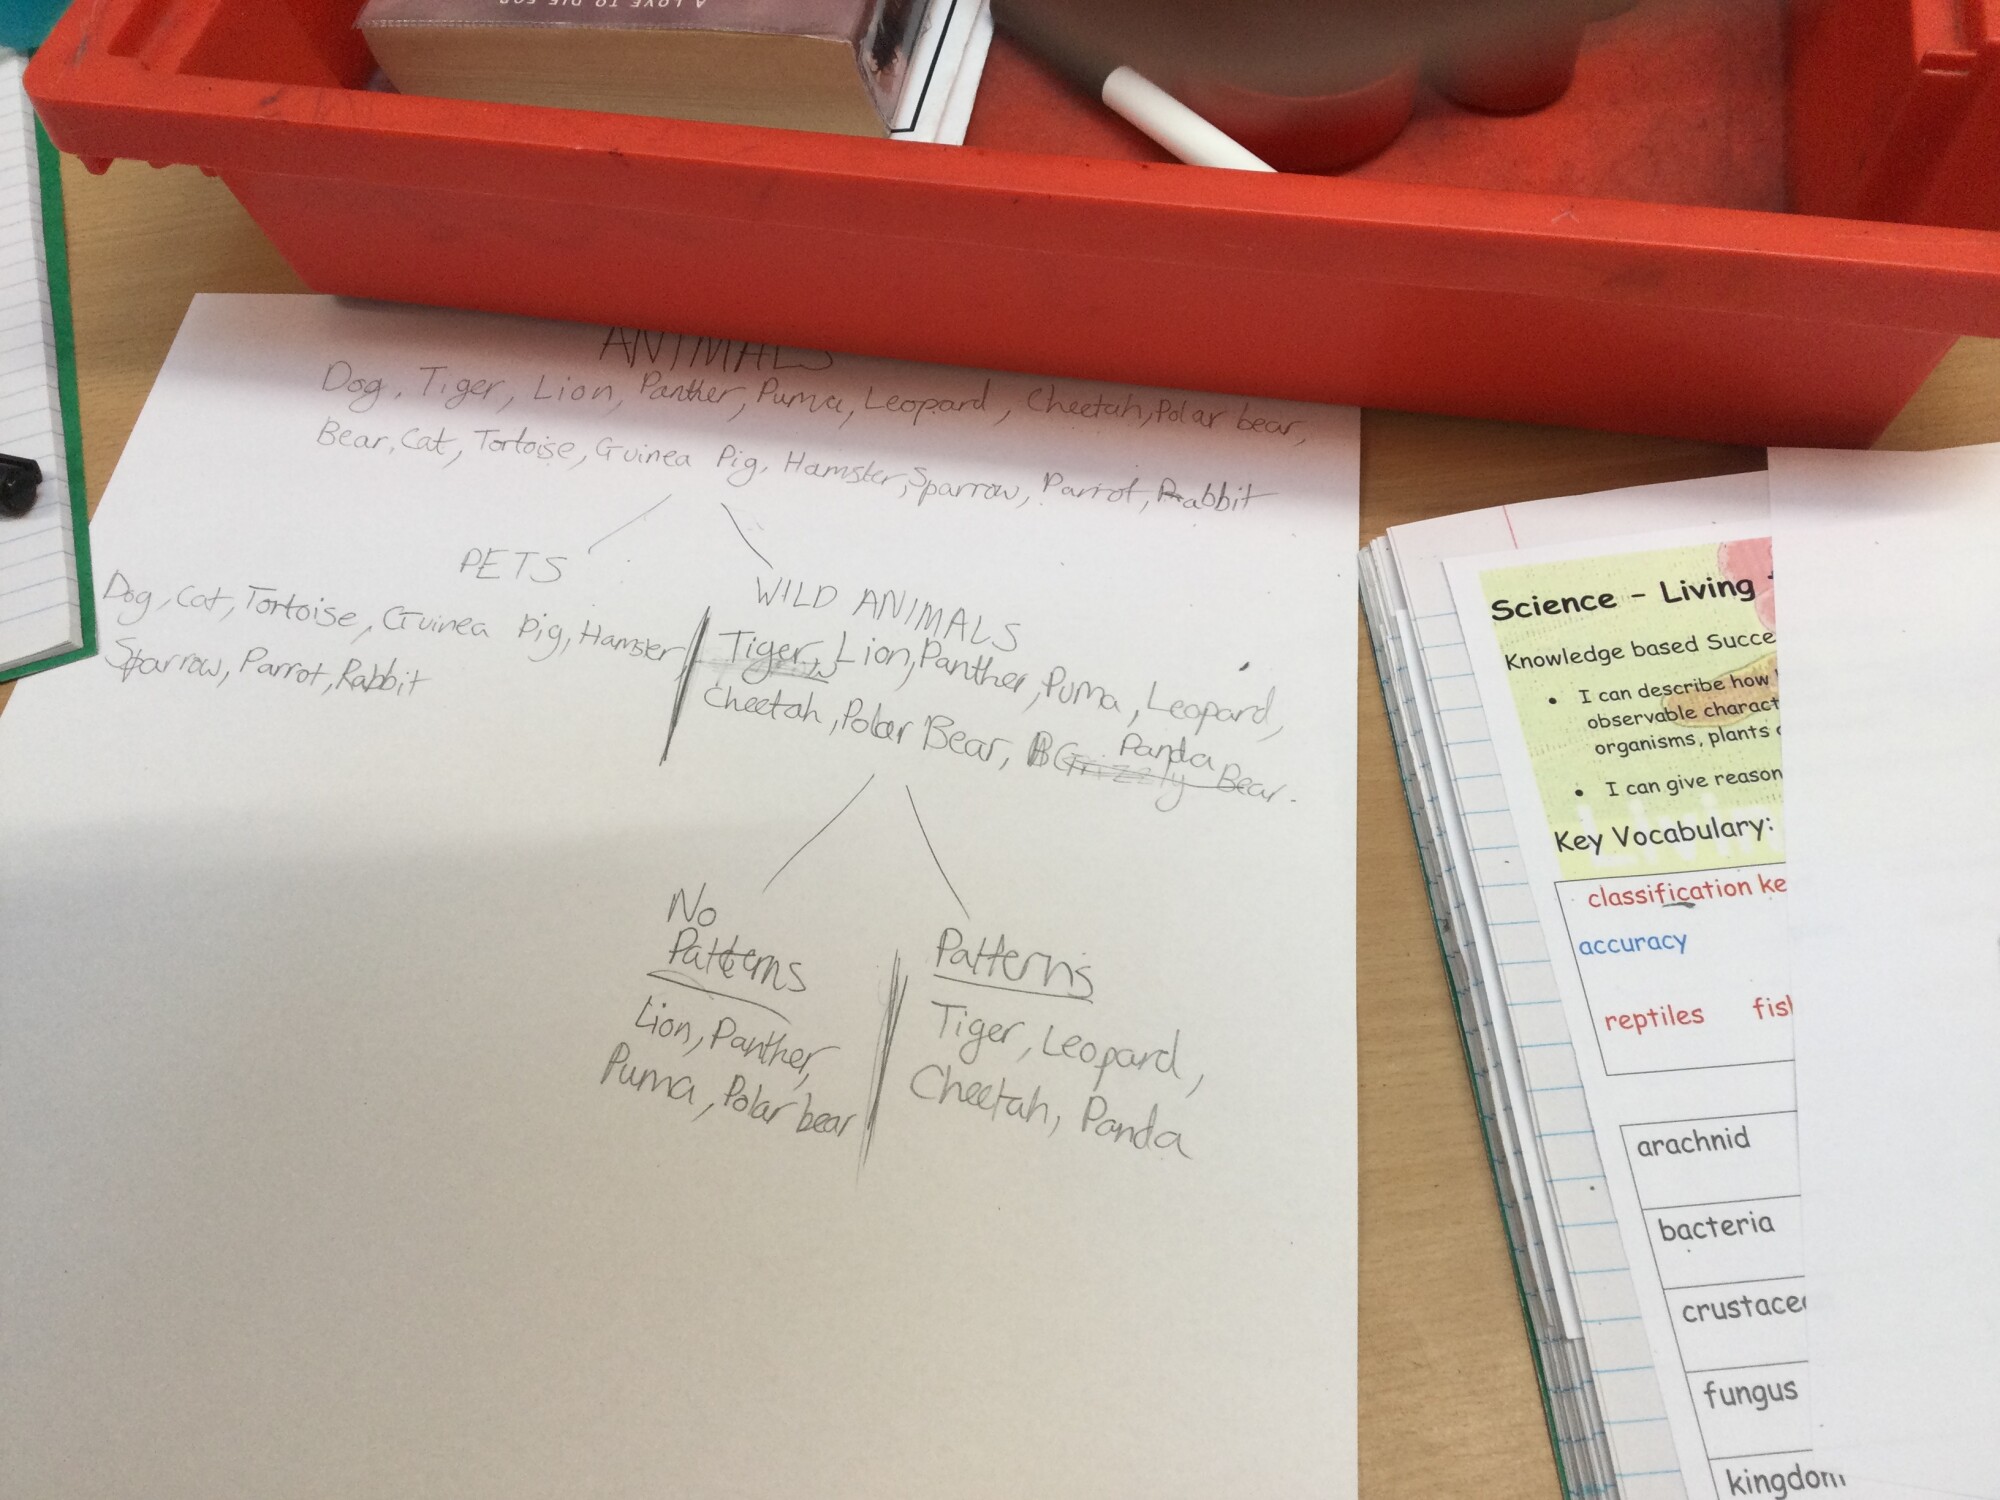 A LOVE TO DIE FOR
ANIMALS
Dog, Tiger, Lion, Panther, Puma, Leopard, Cheetah, Polar bear,
Bear, Cat, Tortoise, Guinea Pig, Hamster, Sparrow, Parrot, Rabbit
PETS
Dog, Cat, Tortoise, Guinea Pig, Hamster,
Sparrow, Parrot, Rabbit
WILD ANIMALS
Tiger, Lion, Panther, Puma, Leopard,
Cheetah, Polar Bear, Grizzly Panda Bear.
No
Patterns
Lion, Panther,
Puma, Polar bear
Patterns
Tiger, Leopard,
Cheetah, Panda
Science - Living
Knowledge based Succe
• I can describe how
observable charact
organisms, plants
• I can give reason
Key Vocabulary:
classification ke
accuracy
reptiles fis
arachnid
bacteria
crustace
fungus
kingdom